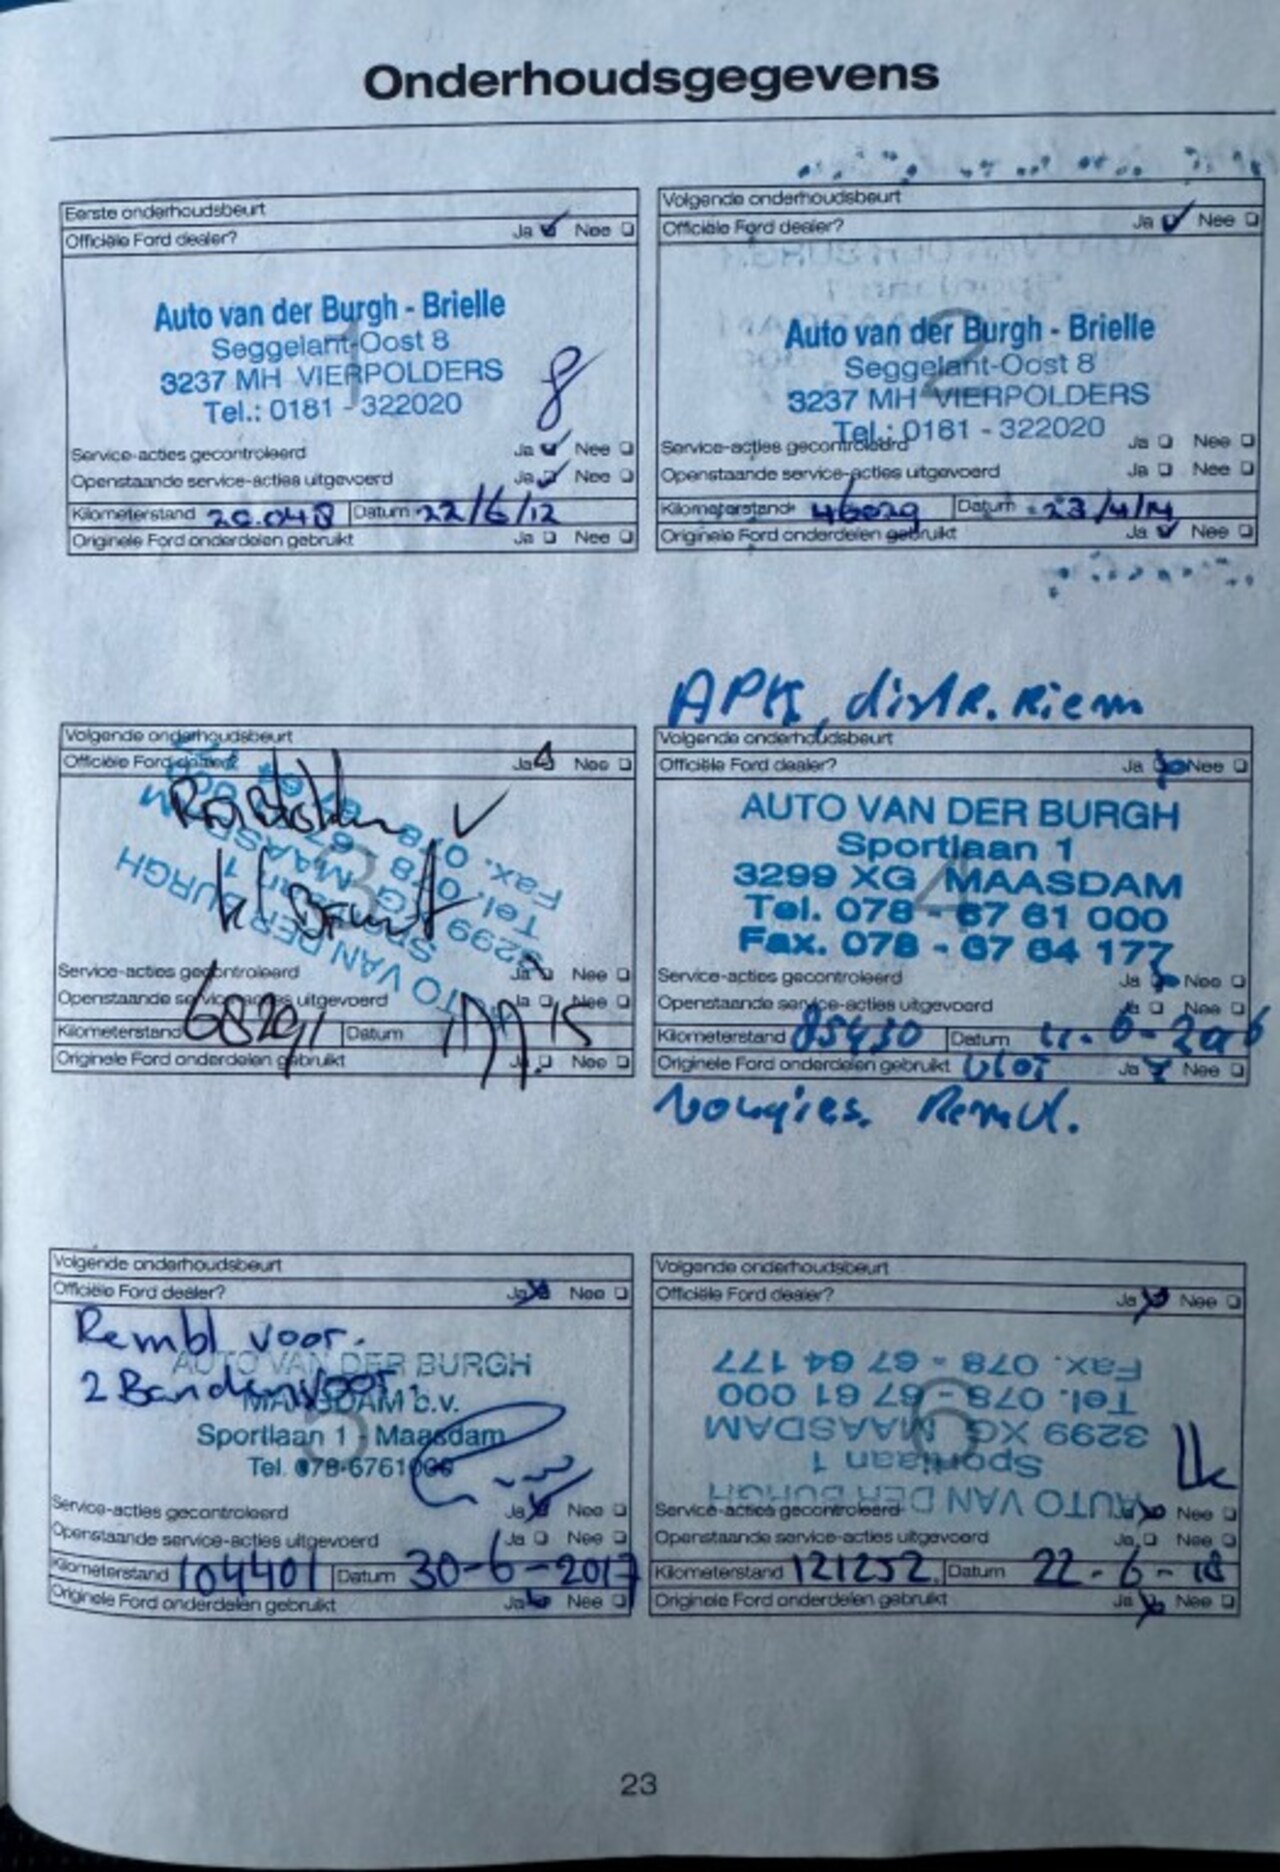 Onderhoudsgegevens
Eerste onderhoudsbeurt
Officiële Ford dealer? Ja Nee
Auto van der Burgh - Brielle
Seggelant-Oost 8
3237 MH VIERPOLDERS
Tel.: 0181 - 322020
1
Service-acties gecontroleerd Ja Nee
Openstaande service-acties uitgevoerd Ja Nee
Kilometerstand 20.048 Datum 22/6/12
Originele Ford onderdelen gebruikt Ja Nee
Volgende onderhoudsbeurt
Officiële Ford dealer? Ja Nee
Auto van der Burgh - Brielle
Seggelant-Oost 8
3237 MH VIERPOLDERS
Tel.: 0181 - 322020
2
Service-acties gecontroleerd Ja Nee
Openstaande service-acties uitgevoerd Ja Nee
Kilometerstand 46029 Datum 23/4/14
Originele Ford onderdelen gebruikt Ja Nee
Volgende onderhoudsbeurt
Officiële Ford dealer? Ja Nee
AUTO VAN DER BURGH
Sportlaan 1
3299 XG MAASDAM
Tel. 078
Fax. 078
3
Service-acties gecontroleerd Ja Nee
Openstaande service-acties uitgevoerd Ja Nee
Kilometerstand 68291 Datum 15
Originele Ford onderdelen gebruikt Ja Nee
APK, distr. Riem
Volgende onderhoudsbeurt
Officiële Ford dealer? Ja Nee
AUTO VAN DER BURGH
Sportlaan 1
3299 XG MAASDAM
Tel. 078 - 67 61 000
Fax. 078 - 67 64 177
4
Service-acties gecontroleerd Ja Nee
Openstaande service-acties uitgevoerd Ja Nee
Kilometerstand 85430 Datum
Originele Ford onderdelen gebruikt Ja Nee
Volgende onderhoudsbeurt
Officiële Ford dealer? Ja Nee
Rembl voor.
2 Banden voor.
AUTO VAN DER BURGH
MAASDAM b.v.
Sportlaan 1 - Maasdam
Tel. 078-6761000
5
Service-acties gecontroleerd Ja Nee
Openstaande service-acties uitgevoerd Ja Nee
Kilometerstand 104401 Datum 30-6-2017
Originele Ford onderdelen gebruikt Ja Nee
Volgende onderhoudsbeurt
Officiële Ford dealer? Ja Nee
AUTO VAN DER BURGH
Sportlaan 1
3299 XG MAASDAM
Tel. 078 - 67 61 000
Fax. 078 - 67 64 177
6
Service-acties gecontroleerd Ja Nee
Openstaande service-acties uitgevoerd Ja Nee
Kilometerstand 121252 Datum 22-6-18
Originele Ford onderdelen gebruikt Ja Nee
23